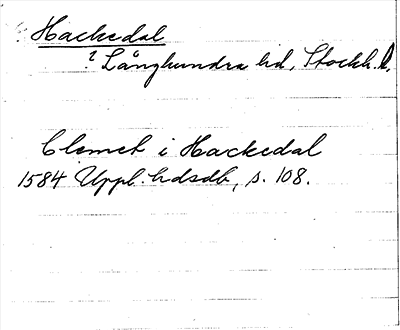 Hackedal
? Långhundra hd, Stockh. l.
Clemet i Hackedal
1584 Uppl. hdsdb, s. 108.